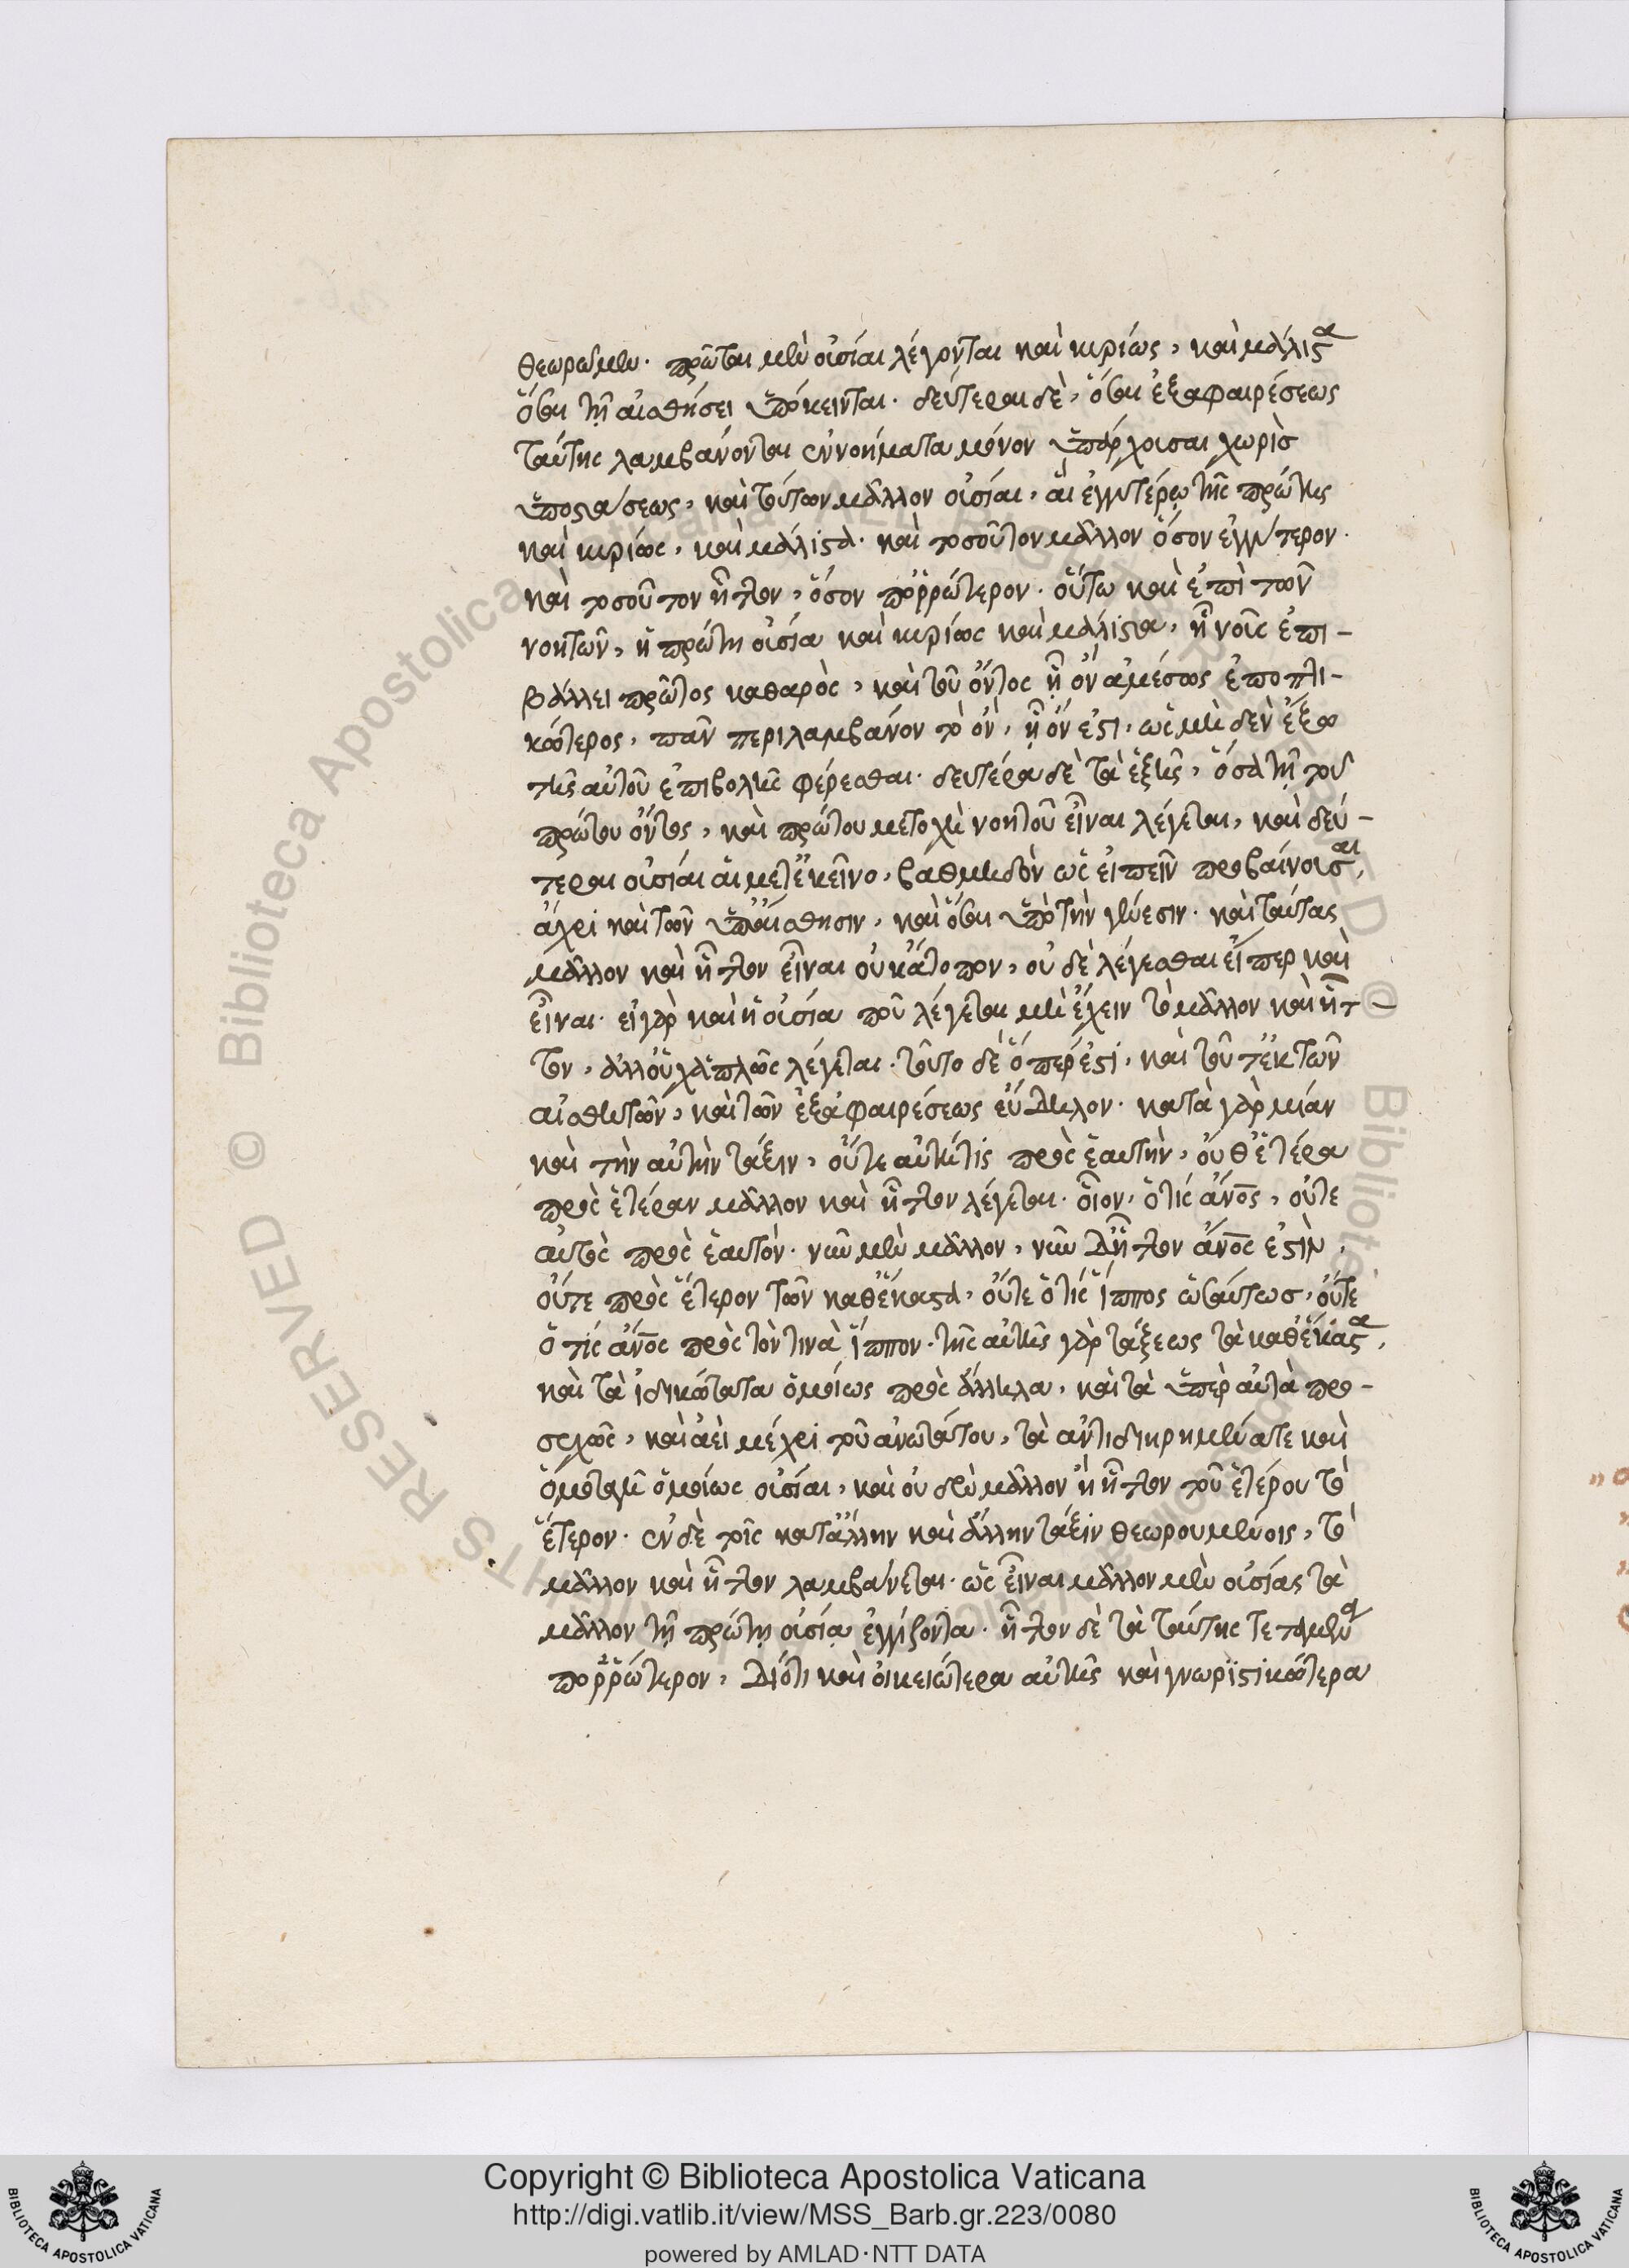 θεωροῦμεν. πρῶται μὲν οὐσίαι λέγονται καὶ κυρίως, καὶ μάλιστα
ὅσαι τῇ αἰσθήσει ὑπόκεινται. δεύτεραι δὲ, ὅσαι ἐξ ἀφαιρέσεως
ταύτης λαμβάνονται ἐννοήματα μόνον ὑπάρχουσαι χωρὶς
ὑποστάσεως, καὶ τούτων μᾶλλον οὐσίαι, αἱ ἐγγυτέρω τῆς πρώτης
καὶ κυρίως, καὶ μάλιστα. καὶ τοσοῦτον μᾶλλον ὅσον ἐγγύτερον.
καὶ τοσοῦτον ἧττον, ὅσον πορρώτερον. οὕτω καὶ ἐπὶ τῶν
νοητῶν, ἡ πρώτη οὐσία καὶ κυρίως καὶ μάλιστα, ᾗ νοῦς ἐπι-
βάλλει πρῶτος καθαρὸς, καὶ τοῦ ὄντος ᾗ ὂν ἀμέσως ἐποπτι-
κώτερος, πᾶν περιλαμβάνον τὸ ὂν, ᾗ ὄν ἐστι, ὡς μηδὲν ἔξω
τῆς αὐτοῦ ἐπιβολῆς φέρεσθαι. δευτέρα δὲ τὰ ἑξῆς, ὅσα τῇ τοῦ
πρώτου ὄντος, καὶ πρώτου μετοχῇ νοητοῦ εἶναι λέγεται, καὶ δεύ-
τεραι οὐσίαι αἱ μετ' ἐκεῖνο, βαθμηδὸν ὡς εἰπεῖν προβαίνουσαι,
ἄχρι καὶ τῶν ὑπ' αἴσθησιν, καὶ ὅσαι ὑπὸ τὴν γένεσιν. καὶ ταύτας
μᾶλλον καὶ ἧττον εἶναι οὐκ ἄτοπον, οὐδὲ λέγεσθαι εἴπερ καὶ
εἶναι. εἰ γὰρ καὶ ἡ οὐσία που λέγεται μὴ ἔχειν τὸ μᾶλλον καὶ ἧτ-
τον, ἀλλ' οὐχ ἁπλῶς λέγεται. τοῦτο δὲ ὅπερ ἐστί, καὶ τοῦτ' ἐκ τῶν
αἰσθητῶν, καὶ τῶν ἐξ ἀφαιρέσεως εὔδηλον. κατὰ γὰρ μίαν
καὶ τὴν αὐτὴν τάξιν, οὔτε αὐτή τις πρὸς ἑαυτὴν, οὔθ' ἑτέρα
πρὸς ἑτέραν μᾶλλον καὶ ἧττον λέγεται. οἷον, ὅ τις ἄνος, οὔτε
αὐτὸς πρὸς ἑαυτόν. νῦν μὲν μᾶλλον, νῦν δ' ἧττον ἄνος ἐστὶν,
οὔτε πρὸς ἕτερον τῶν καθ' ἕκαστα, οὔτε ὅ τις ἵππος ὡσαύτως, οὔτε
ὅ τις ἄνος πρὸς τὸν τινὰ ἵππον. τῆς αὐτῆς γὰρ τάξεως τὰ καθ' ἕκαστα,
καὶ τὰ ἰδικώτατα ὁμοίως πρὸς ἄλληλα, καὶ τὰ ὑπὲρ αὐτὰ προ-
σεχῶς, καὶ ἀεὶ μέχρι τοῦ ἀνωτάτου, τὰ ἀντιδιῃρημένα τε καὶ
ὁμοταγῆ ὁμοίως οὐσίαι, καὶ οὐδὲν μᾶλλον ἢ ἧττον τοῦ ἑτέρου τὸ
ἕτερον. ἐν δὲ τοῖς κατ' ἄλλην καὶ ἄλλην τάξιν θεωρουμένοις, τὸ
μᾶλλον καὶ ἧττον λαμβάνεται. ὡς εἶναι μᾶλλον μὲν οὐσίας τὰ
μᾶλλον τῇ πρώτῃ οὐσίᾳ ἐγγίζοντα. ἧττον δὲ τὰ ταύτης τεταγμένα
πορρώτερον, διότι καὶ οἰκειότερα αὐτῆς καὶ γνωριστικώτερα
Copyright © Biblioteca Apostolica Vaticana
http://digi.vatlib.it/view/MSS_Barb.gr.223/0080
powered by AMLAD·NTT DATA